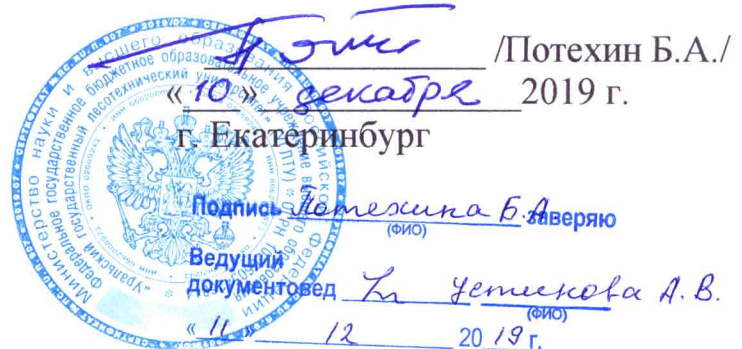 /Потехин Б.А./
« 10 » декабря 2019 г.
г. Екатеринбург
Подпись Потехина Б.А. заверяю
(ФИО)
Ведущий
документовед Устинова А. В.
(ФИО)
« 11 » 12 20 19 г.
Министерство науки и высшего образования Российской Федерации
Федеральное государственное бюджетное образовательное учреждение
«Уральский государственный лесотехнический университет»